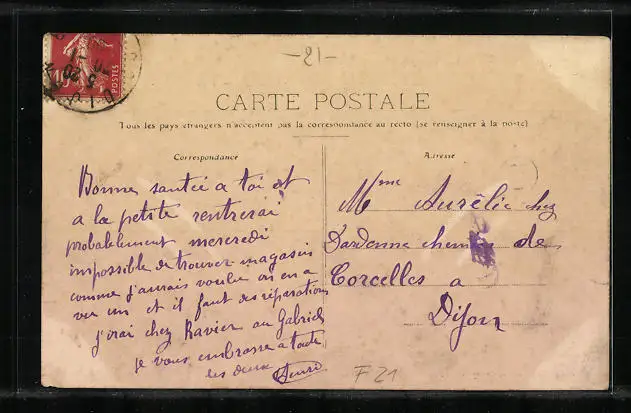 -21-
POSTES
DIJON
CARTE POSTALE
Tous les pays étrangers n'acceptent pas la correspondance au recto (se renseigner à la poste)
Correspondance
Bonne santée a toi et
a la petite rentrerai
probablement mercredi
impossible de trouver magasin
comme j'aurais voulu on en a
vu un et il faut des réparations
j'irai chez Ravier ou Gabriel
je vous embrasse a toute
les deux Henri
Adresse
Mme Aurélie chez
Dardenne chemin de
Corcelles a
Dijon
F21